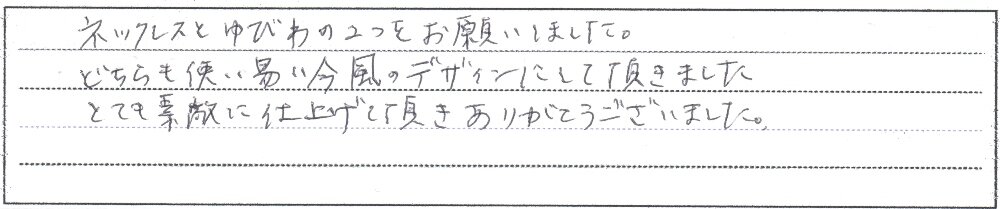 ネックレスとゆびわの2つをお願いしました。
どちらも使い易い今風のデザインにして頂きました
とても素敵に仕上げて頂きありがとうございました。